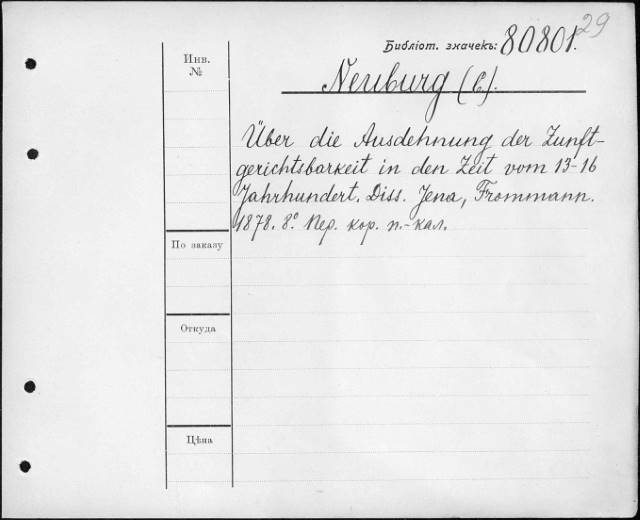 29
Библіот. значекъ: 80801.
Инв.
№
Neuburg (C).
Über die Ausdehnung der Zunft-
gerichtsbarkeit in den Zeit vom 13-16
Jahrhundert. Diss. Jena, Frommann.
1878. 8° Пер. кор. п.-кал.
По заказу
Откуда
Цѣна